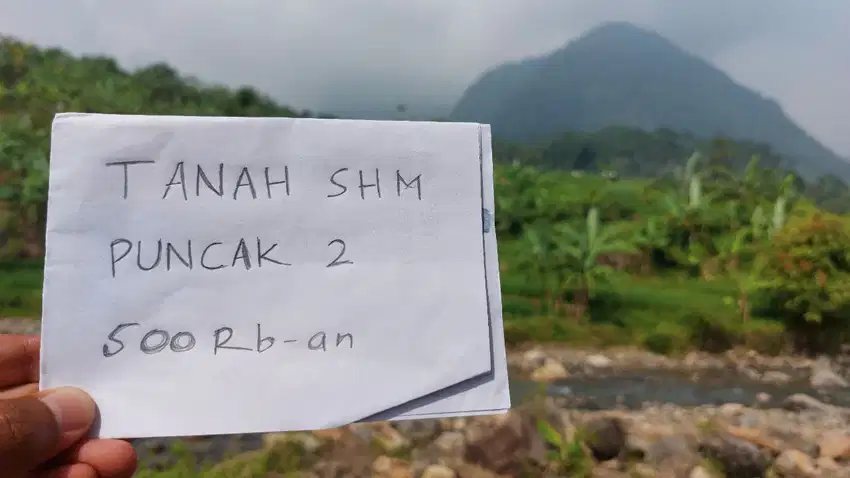 TANAH SHM
PUNCAK 2
500 Rb-an